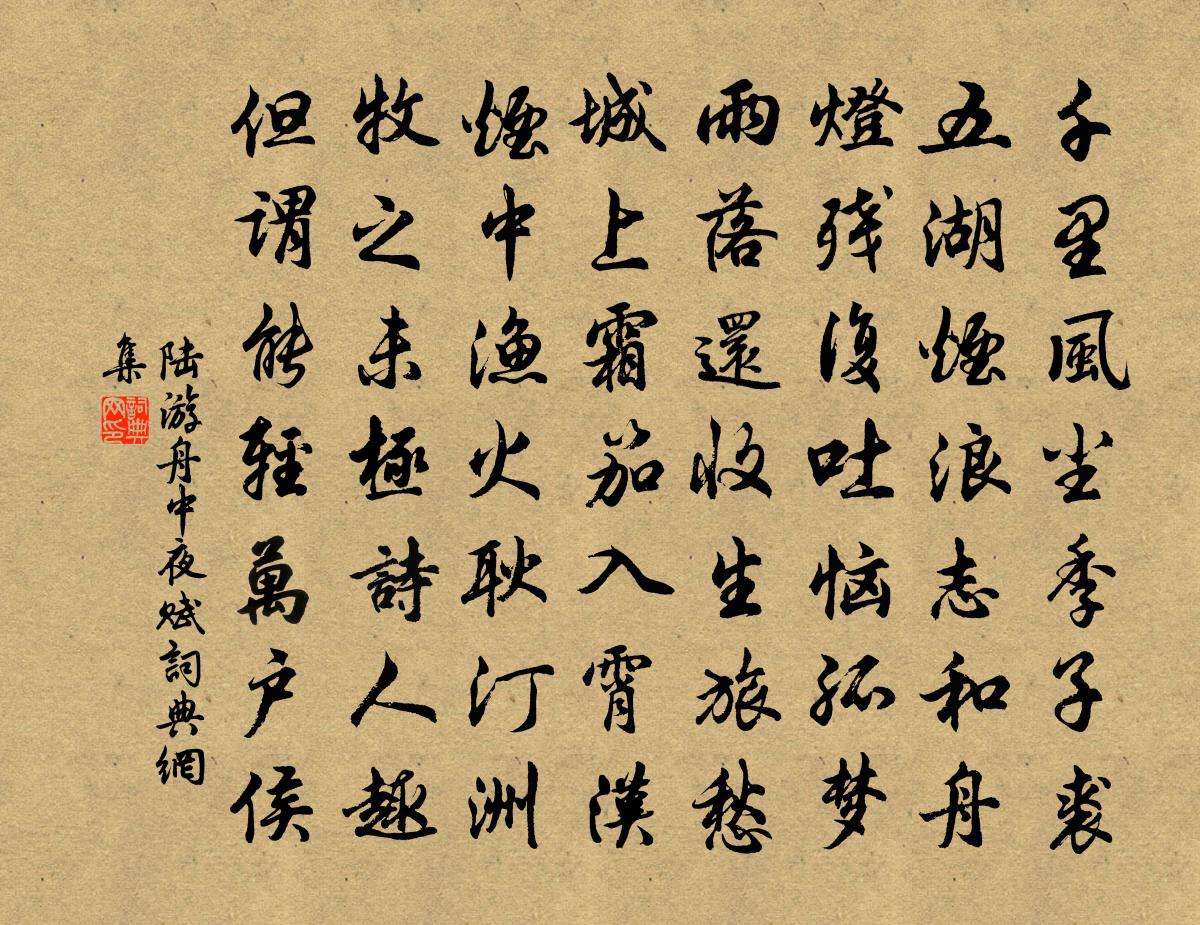 千里風塵季子裘
五湖煙浪志和舟
燈残復吐惱孤梦
雨落還收生旅愁
城上霜笳入霄漢
煙中漁火耿汀洲
牧之未極詩人趣
但謂能輕萬户侯
陆游舟中夜赋詞典網
集
詞典
网印